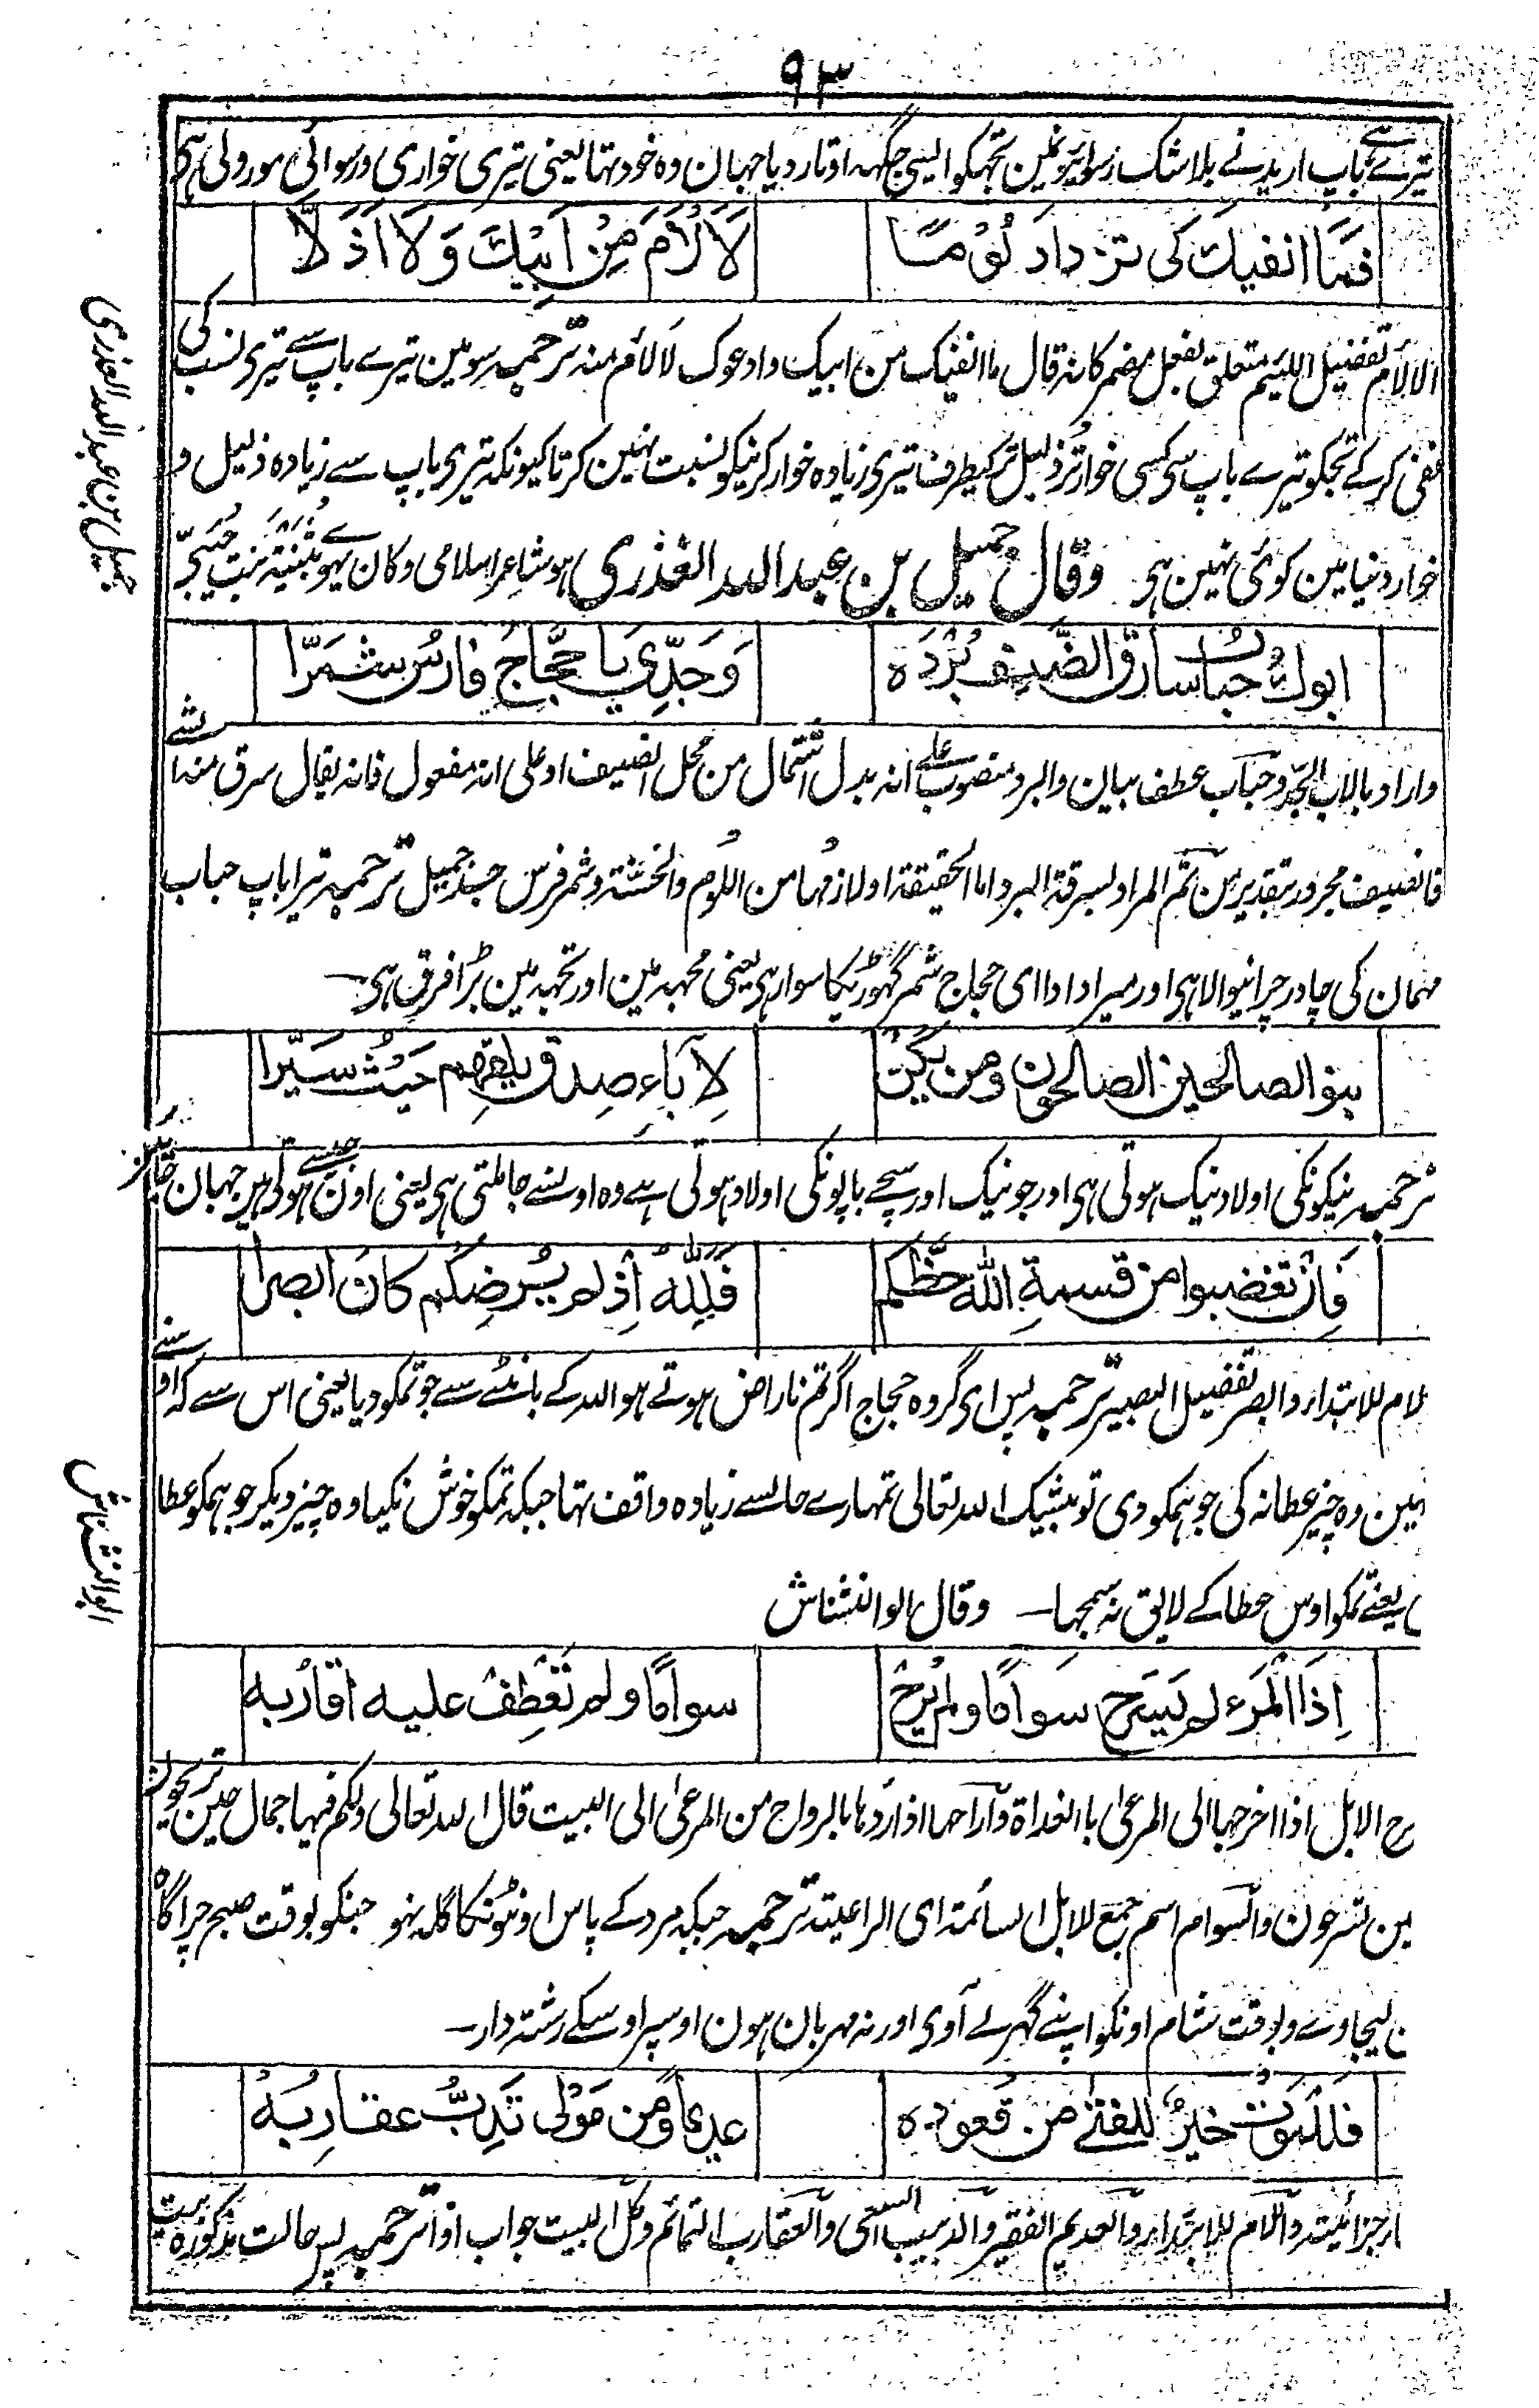 ٩٣
تیرے باپ اربد نے بلا شک رسوائیونمین تجھکو ایسی جگہہ اوتار دیا جہان وہ خود تہا یعنی تیری خواری ورسوائی موروثی ہی
فَمَا انفیك کی تزدادَ لُؤْمًا لَاَ لْاَمَ مِنْ اَبِیْكَ وَلَا اَذَلَّا
الالأم تفضیل اللئیم متعلق بفعل مضمر کانہ قال ما انفیک من ابیک وادعوک لالأم منہ ترجمہ سو مین تیرے باپ سے تیری نسب کی
نفی کرکے تجکو تیرے باپ سی کسی خوارتر ذلیل تر کیطرف تیری زیادہ خوار کرنیکو نسبت نہین کرتا کیونکہ تیری باپ سے زیادہ ذلیل و
خوار دنیا مین کوئی نہین ہی وقال جمیل بن عبد اللہ العذری ہو شاعر اسلامی وکان یہوی بثینۃ بنت حُبَیّ
جمیل بن عبد اللہ العذری
ابوك حُبابٌ سارقُ الضیفِ بُرْدَہ وَجَدِّی یا حَجَّاجُ فارسُ شَمَّرَا
واراد بالاب الجد وحباب عطف بیان والبرد منصوب علے انہ بدل اشتمال من محل الضیف او علی انہ مفعول فانہ یقال سرق منہ الشے
فالضیف مجرور بتقدیر من ثم المراد بسرقۃ البرد اما الحقیقۃ او لازمہا من اللؤم والخسۃ وشمر فرس جد جمیل ترجمہ تیرا باپ حباب
مہمان کی چادر چرانیوالا ہی اور میرا دادا ای حجاج شمر گہوڑیکا سوار ہی یعنی مجہہ مین اور تجہہ مین بڑا فرق ہی
بنو الصالحین الصالحون ومن یکن لِآبَاءِ صِدقٍ یلقهم حَیْثُ سَیَّرَا
ترجمہ نیکونکی اولاد نیک ہوتی ہی اور جو نیک اور سچے باپونکی اولاد ہوتی ہے وہ اونسے جا ملتی ہی یعنی اون جیسے ہوتی ہین جہان
فَاِنْ تغضبوا من قسمةِ اللہ حَظَّكم فَلَلّٰهُ اِذْ لم یُرْضِكُم كَانَ ابصرا
لام للابتداء وابصر تفضیل البصیر ترجمہ پس ای گروہ حجاج اگر تم ناراض ہوتے ہو اللہ کے بانٹنے سے جو تمکو دیا یعنی اس سے کہ اوسنے
ہین وہ چیز عطا نہ کی جو ہمکو دی تو بیشک اللہ تعالی تمہارے حالسے زیادہ واقف تہا جبکہ تمکو خوش نکیا وہ چیز دیکر جو ہمکو عطا
یعنے تمکو اوس عطا کے لایق نہ سمجہا وقال ابو النشناش
ابو النشناش
اِذَا الْمَرْءُ لم یَسْرَحْ سَوَامًا ولم یُرِحْ سوامًا ولم تَعْطِفْ علیہ اقاربہ
رح الابل اذا اخرجہا الی المرعی بالغداۃ واراحہا اذا ردہا بالرواح من المرعی الی البیت قال اللہ تعالی ولکم فیہا جمال حین تریحون
ین تسرحون والسوام اسم جمع للابل السائمۃ ای الراعیۃ ترجمہ جبکہ مرد کے پاس اونٹونکا گلہ نہو جنکو بوقت صبح چراگاہ
لیجاوے وبوقت شام اونکو اپنے گہر لے آوی اور نہ مہربان ہون اوسپر اوسکے رشتہ دار
فَلَلْمَوْتُ خیرٌ للفتی من قُعودہ عدیمًا ومن مَوْلًی تَدِبُّ عقاربُہ
ار جزائیۃ واللام للابتداء والعدیم الفقیر والدبیب السعی والعقارب النمائم وکل البیت جواب اذا ترجمہ پس حالت مذکورہ